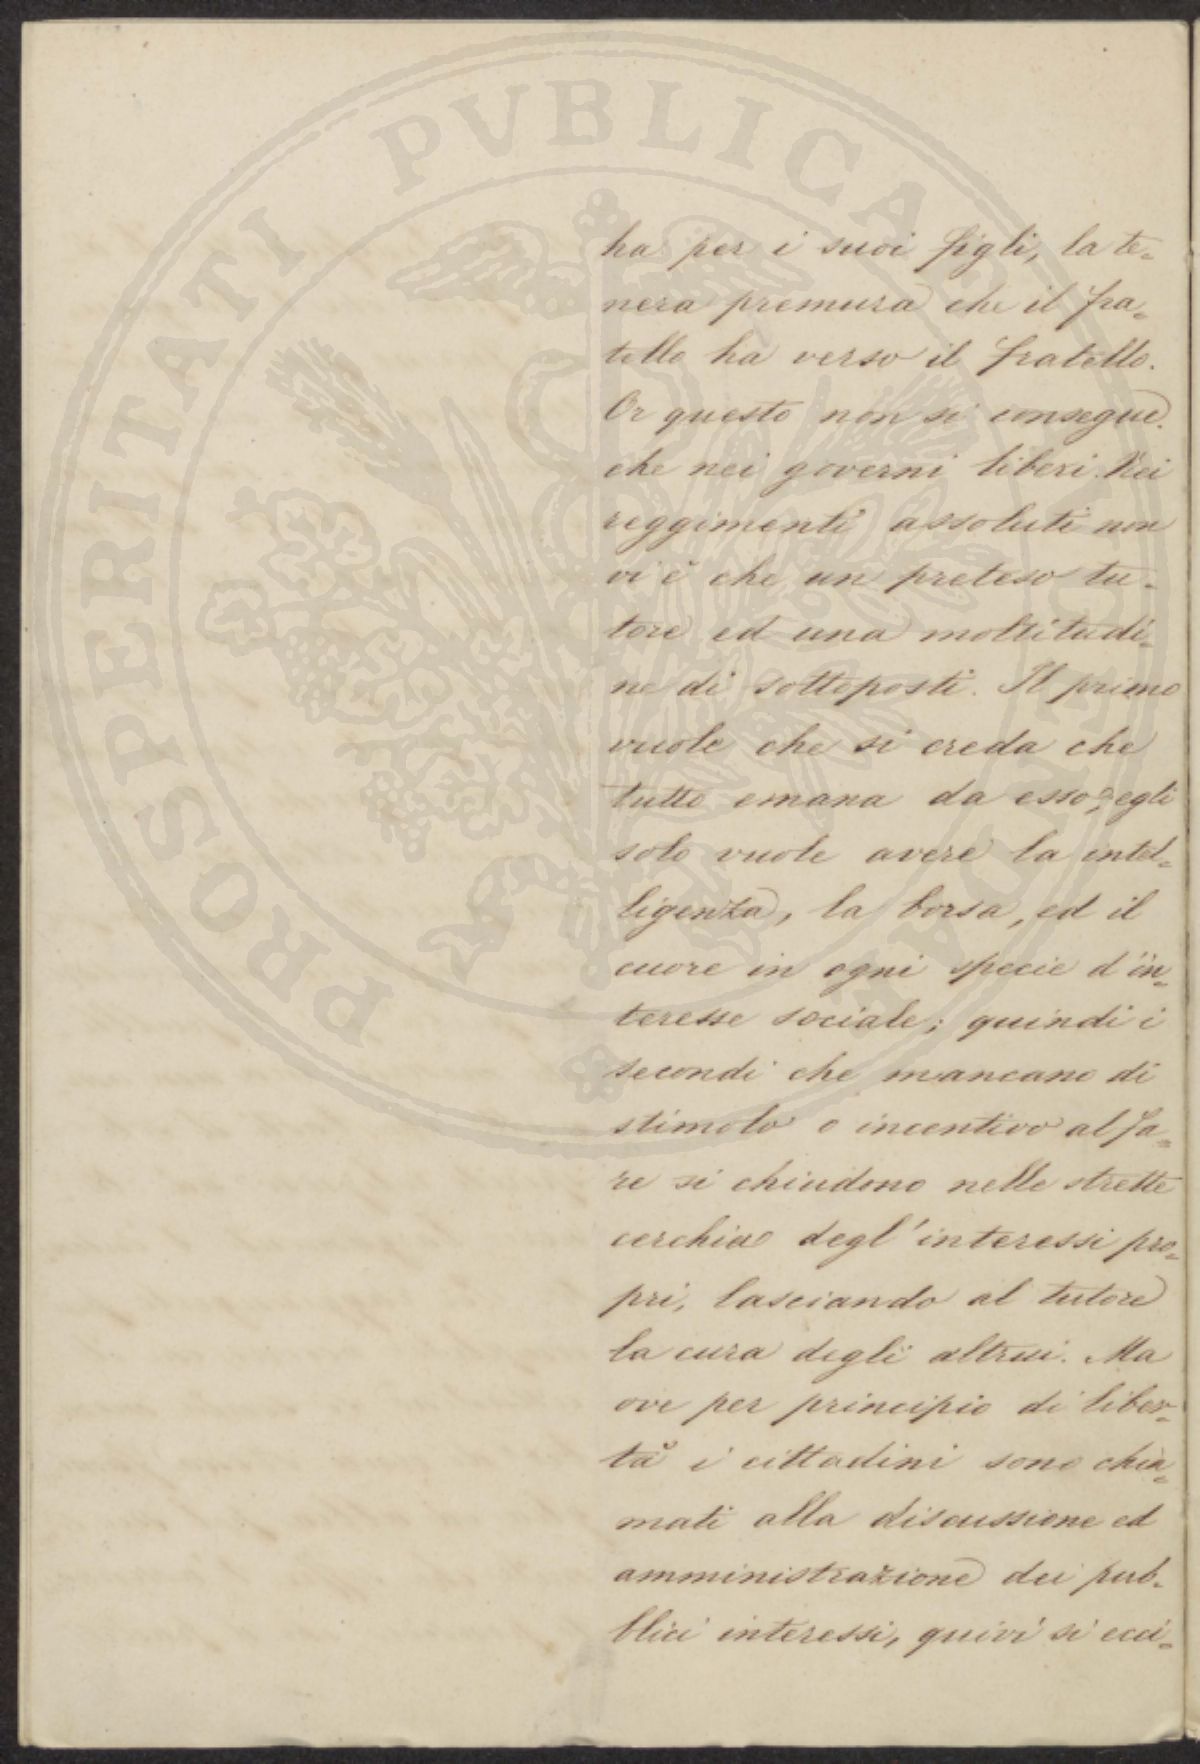 ha per i suoi figli, la te=
nera premura che il fra=
tello ha verso il fratello.
Or questo non si consegue
che nei governi liberi. Nei
reggimenti assoluti non
vi è che un preteso tu=
tore ed una moltitudi=
ne di sottoposti. Il primo
vuole che si creda che
tutto emana da esso; egli
solo vuole avere la intel=
ligenza, la borsa, ed il
cuore in ogni specie d'in=
teresse sociale; quindi i
secondi che mancano di
stimolo o incentivo al fa=
re si chiudono nelle strette
cerchia degl'interessi pro=
pri, lasciando al tutore
la cura degli altrui. Ma
ove per principio di liber=
tà i cittadini sono chia=
mati alla discussione ed
amministrazione dei pub=
blici interessi, quivi si ecci=
PROSPERITATI PVBLICAE